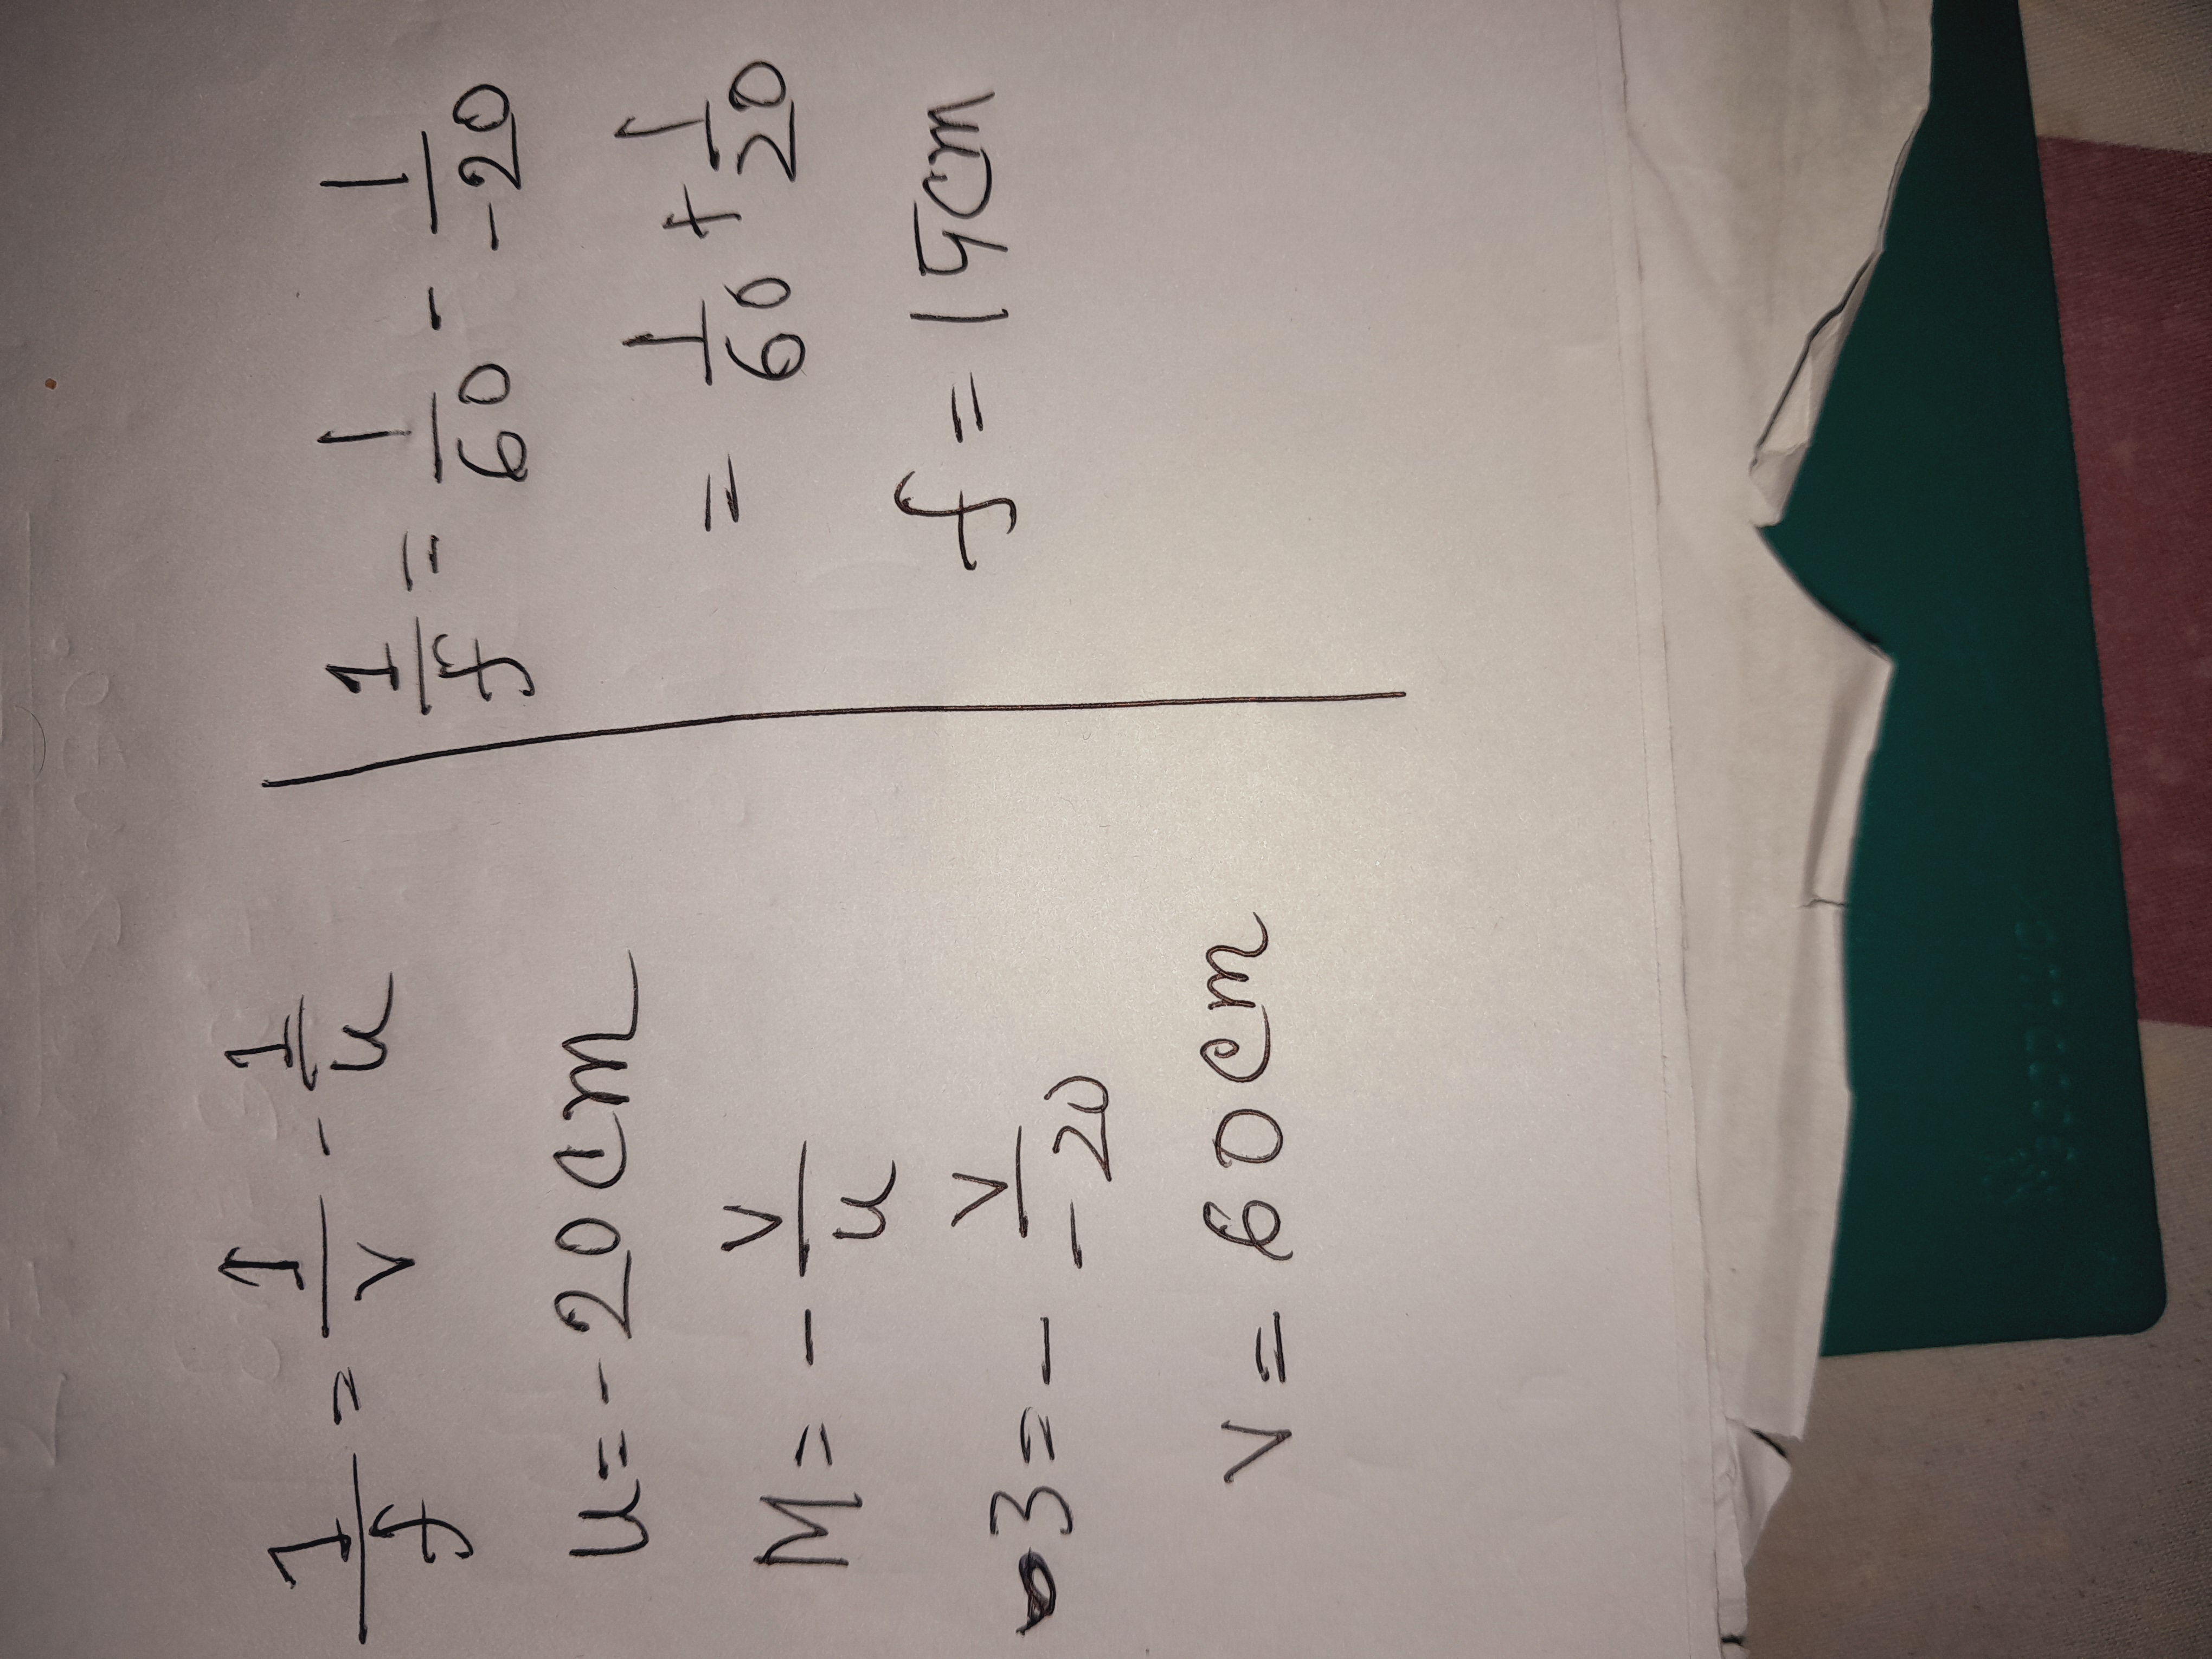 1/f = 1/v - 1/u
u = -20 cm
M = - v/u
3 = - v/-20
v = 60 cm
1/f = 1/60 - 1/-20
= 1/60 + 1/20
f = 15cm